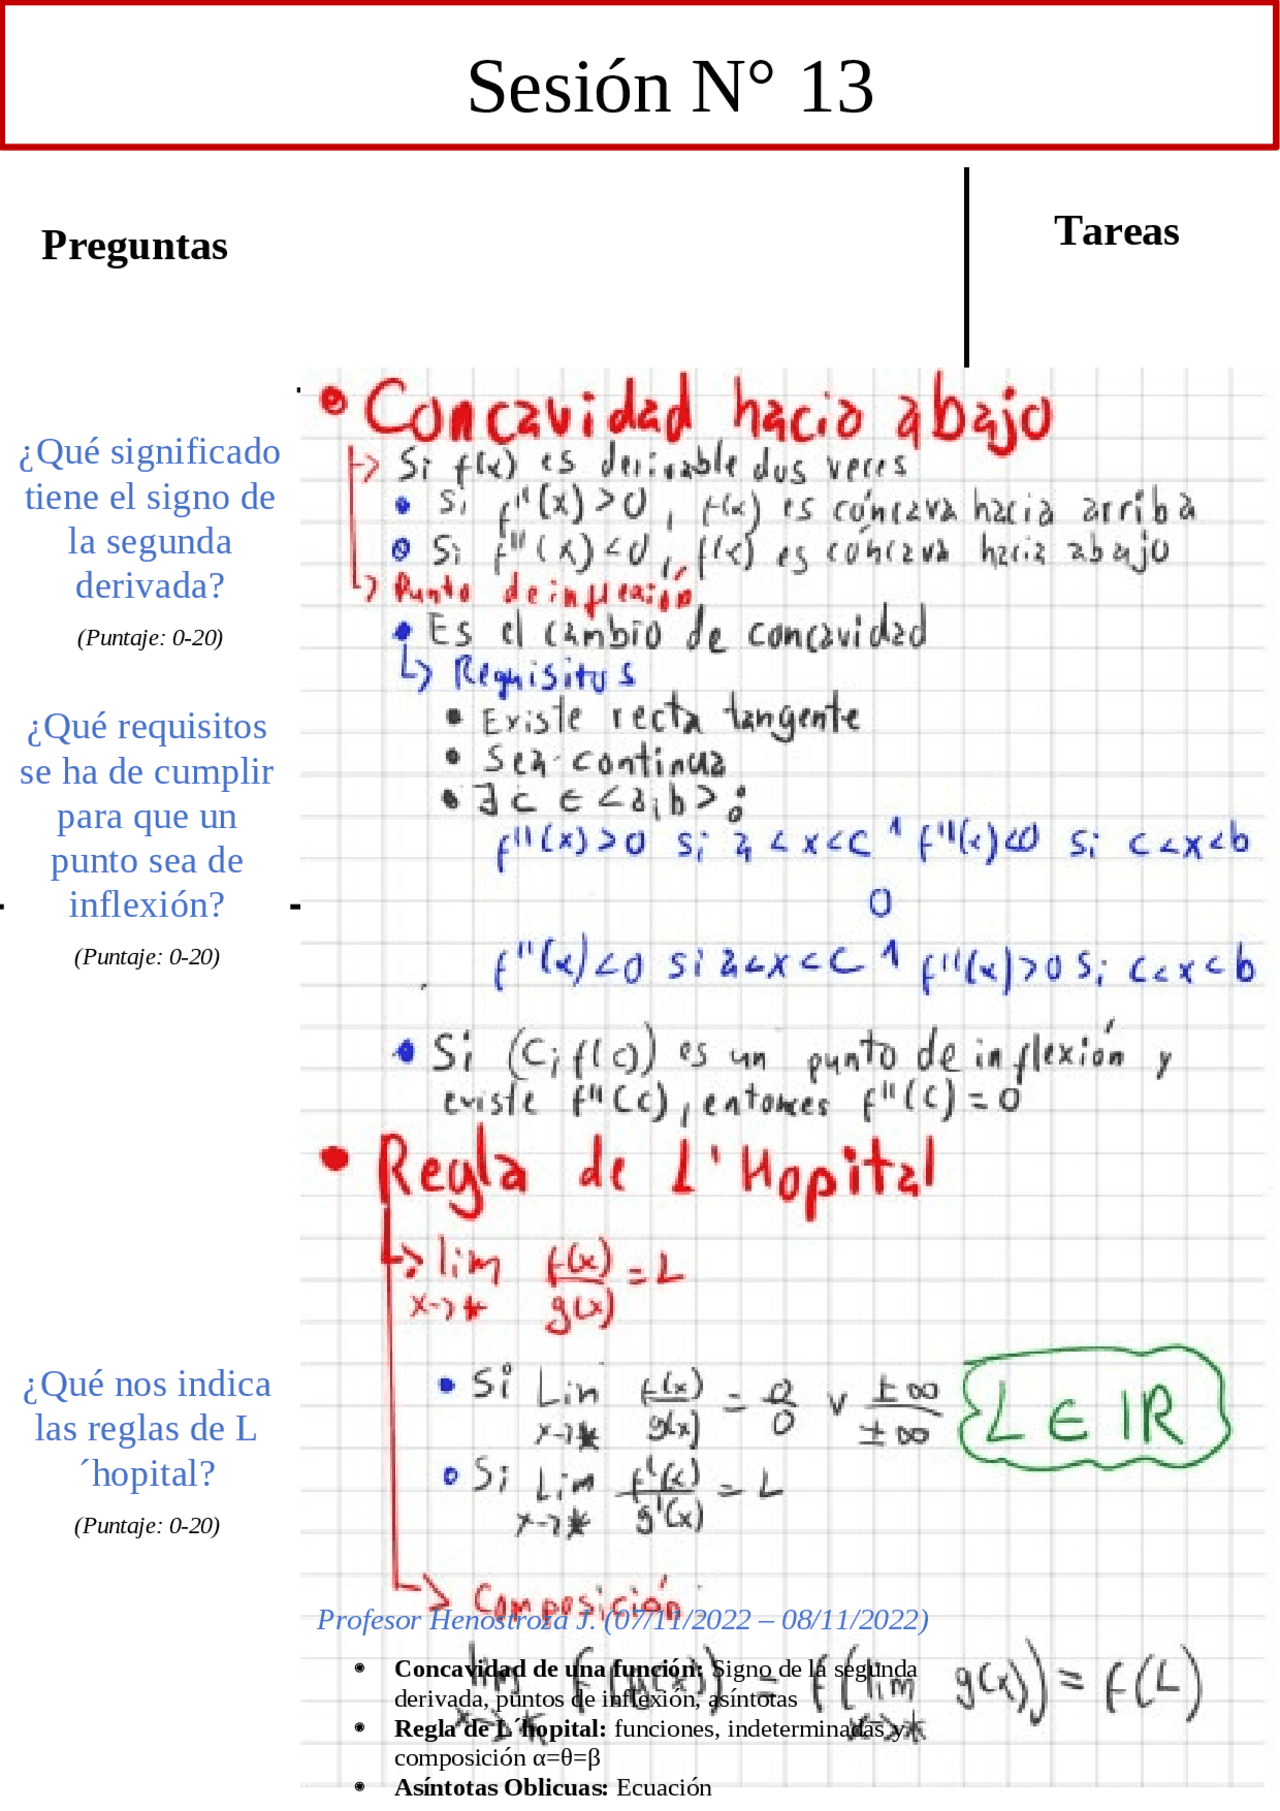 Sesión N° 13
Preguntas
Tareas
¿Qué significado
tiene el signo de
la segunda
derivada?
(Puntaje: 0-20)
¿Qué requisitos
se ha de cumplir
para que un
punto sea de
inflexión?
(Puntaje: 0-20)
¿Qué nos indica
las reglas de L
´hopital?
(Puntaje: 0-20)
• Concavidad hacia abajo
↳ Si f(x) es derivable dos veces
• Si f''(x) > 0, f(x) es cóncava hacia arriba
• Si f''(x) < 0, f(x) es cóncava hacia abajo
↳ Punto de inflexión
• Es el cambio de concavidad
↳ Requisitos
• Existe recta tangente
• Sea continua
• ∃ c ∈ <a;b> :
f''(x) > 0 si a < x < c ∧ f''(x) < 0 si c < x < b
o
f''(x) < 0 si a < x < c ∧ f''(x) > 0 si c < x < b
• Si (c; f(c)) es un punto de inflexión y
existe f''(c), entonces f''(c) = 0
• Regla de L'Hopital
↳ lim x→* f(x)/g(x) = L
• Si Lim x→* f(x)/g(x) = 0/0 v ±∞/±∞
L ∈ IR
• Si Lim x→* f'(x)/g'(x) = L
↳ Composición
lim x→* f(g(x)) = f(lim x→* g(x)) = f(L)
Profesor Henostroza J. (07/11/2022 – 08/11/2022)
Concavidad de una función: Signo de la segunda
derivada, puntos de inflexión, asíntotas
Regla de L´hopital: funciones, indeterminadas y
composición α=θ=β
Asíntotas Oblicuas: Ecuación